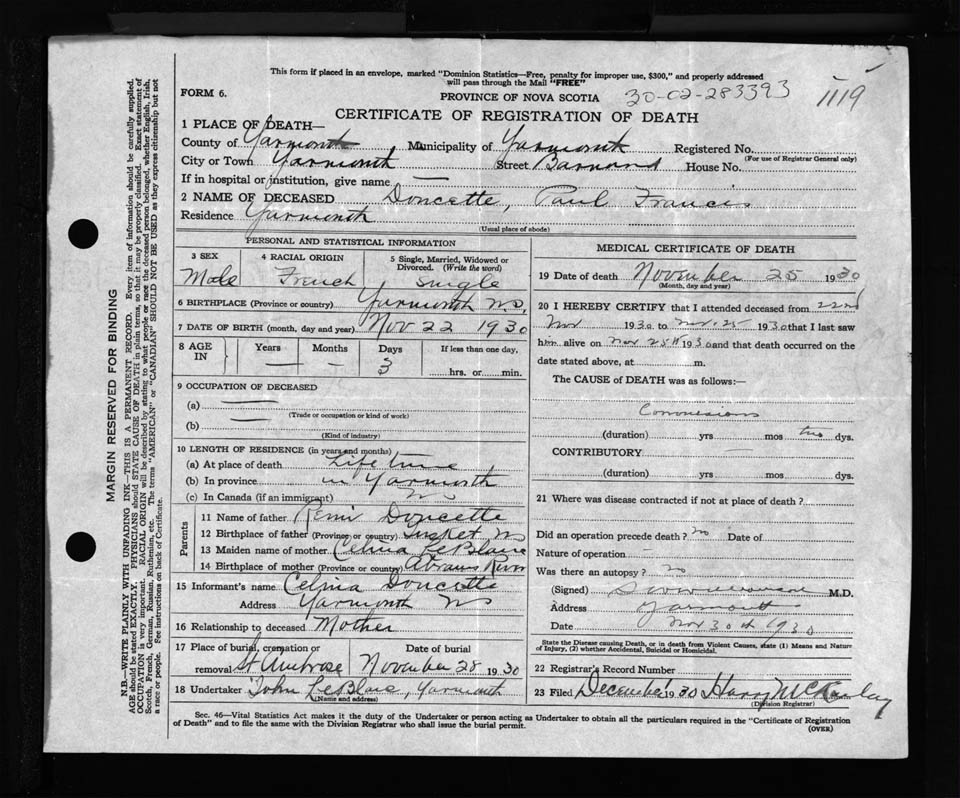 This form if placed in an envelope, marked "Dominion Statistics—Free, penalty for improper use, $300," and properly addressed
will pass through the Mail "FREE"
FORM 6.
PROVINCE OF NOVA SCOTIA
30-02-283393
1119
CERTIFICATE OF REGISTRATION OF DEATH
1 PLACE OF DEATH—
County of Yarmouth Municipality of Yarmouth Registered No.
(For use of Registrar General only)
City or Town Yarmouth Street House No.
If in hospital or institution, give name —
2 NAME OF DECEASED Doucette, Paul Francis
Residence Yarmouth
(Usual place of abode)
PERSONAL AND STATISTICAL INFORMATION
3 SEX 4 RACIAL ORIGIN 5 Single, Married, Widowed or Divorced. (Write the word)
Male French Single
6 BIRTHPLACE (Province or country) Yarmouth NS,
7 DATE OF BIRTH (month, day and year) Nov 22 1930
8 AGE IN Years — Months — Days 3 If less than one day, hrs. or min.
9 OCCUPATION OF DECEASED
(a) —
(Trade or occupation or kind of work)
(b) —
(Kind of industry)
10 LENGTH OF RESIDENCE (in years and months)
(a) At place of death Life time
(b) In province in Yarmouth
(c) In Canada (if an immigrant) NS
Parents
11 Name of father Remi Doucette
12 Birthplace of father (Province or country) Tusket NS
13 Maiden name of mother Celina LeBlanc
14 Birthplace of mother (Province or country) Abrams River
15 Informant's name Celina Doucette
Address Yarmouth NS
16 Relationship to deceased Mother
17 Place of burial, cremation or removal St Ambrose Date of burial November 28 1930
18 Undertaker John LeBlanc, Yarmouth
(Name and address)
MEDICAL CERTIFICATE OF DEATH
19 Date of death November 25 1930
(Month, day and year)
20 I HEREBY CERTIFY that I attended deceased from 22nd
Nov 1930 to Nov 25 1930 that I last saw
him alive on Nov 25th 1930 and that death occurred on the
date stated above, at m.
The CAUSE of DEATH was as follows:—
Convulsions
(duration) yrs mos two dys.
CONTRIBUTORY —
(duration) yrs mos dys.
21 Where was disease contracted if not at place of death?
Did an operation precede death? no Date of
Nature of operation —
Was there an autopsy? no
(Signed) M.D.
Address Yarmouth
Date Nov 30th 1930
State the Disease causing Death, or in death from Violent Causes, state (1) Means and Nature of Injury, (2) whether Accidental, Suicidal or Homicidal.
22 Registrar's Record Number
23 Filed December 1930 Harry
(Division Registrar)
Sec. 46—Vital Statistics Act makes it the duty of the Undertaker or person acting as Undertaker to obtain all the particulars required in the "Certificate of Registration
of Death" and to file the same with the Division Registrar who shall issue the burial permit.
(OVER)
MARGIN RESERVED FOR BINDING
N.B.—WRITE PLAINLY WITH UNFADING INK—THIS IS A PERMANENT RECORD. Every item of information should be carefully supplied.
AGE should be stated EXACTLY. PHYSICIANS should STATE CAUSE OF DEATH in plain terms, so that it may be properly classified. Exact statement of
OCCUPATION is very important. RACIAL ORIGIN will be described by stating to what people or race the deceased person belonged, whether English, Irish,
Scotch, French, German, Russian, Ruthenian, etc. The terms "AMERICAN" or "CANADIAN" SHOULD NOT BE USED as they express citizenship but not
a race or people. See instructions on back of Certificate.